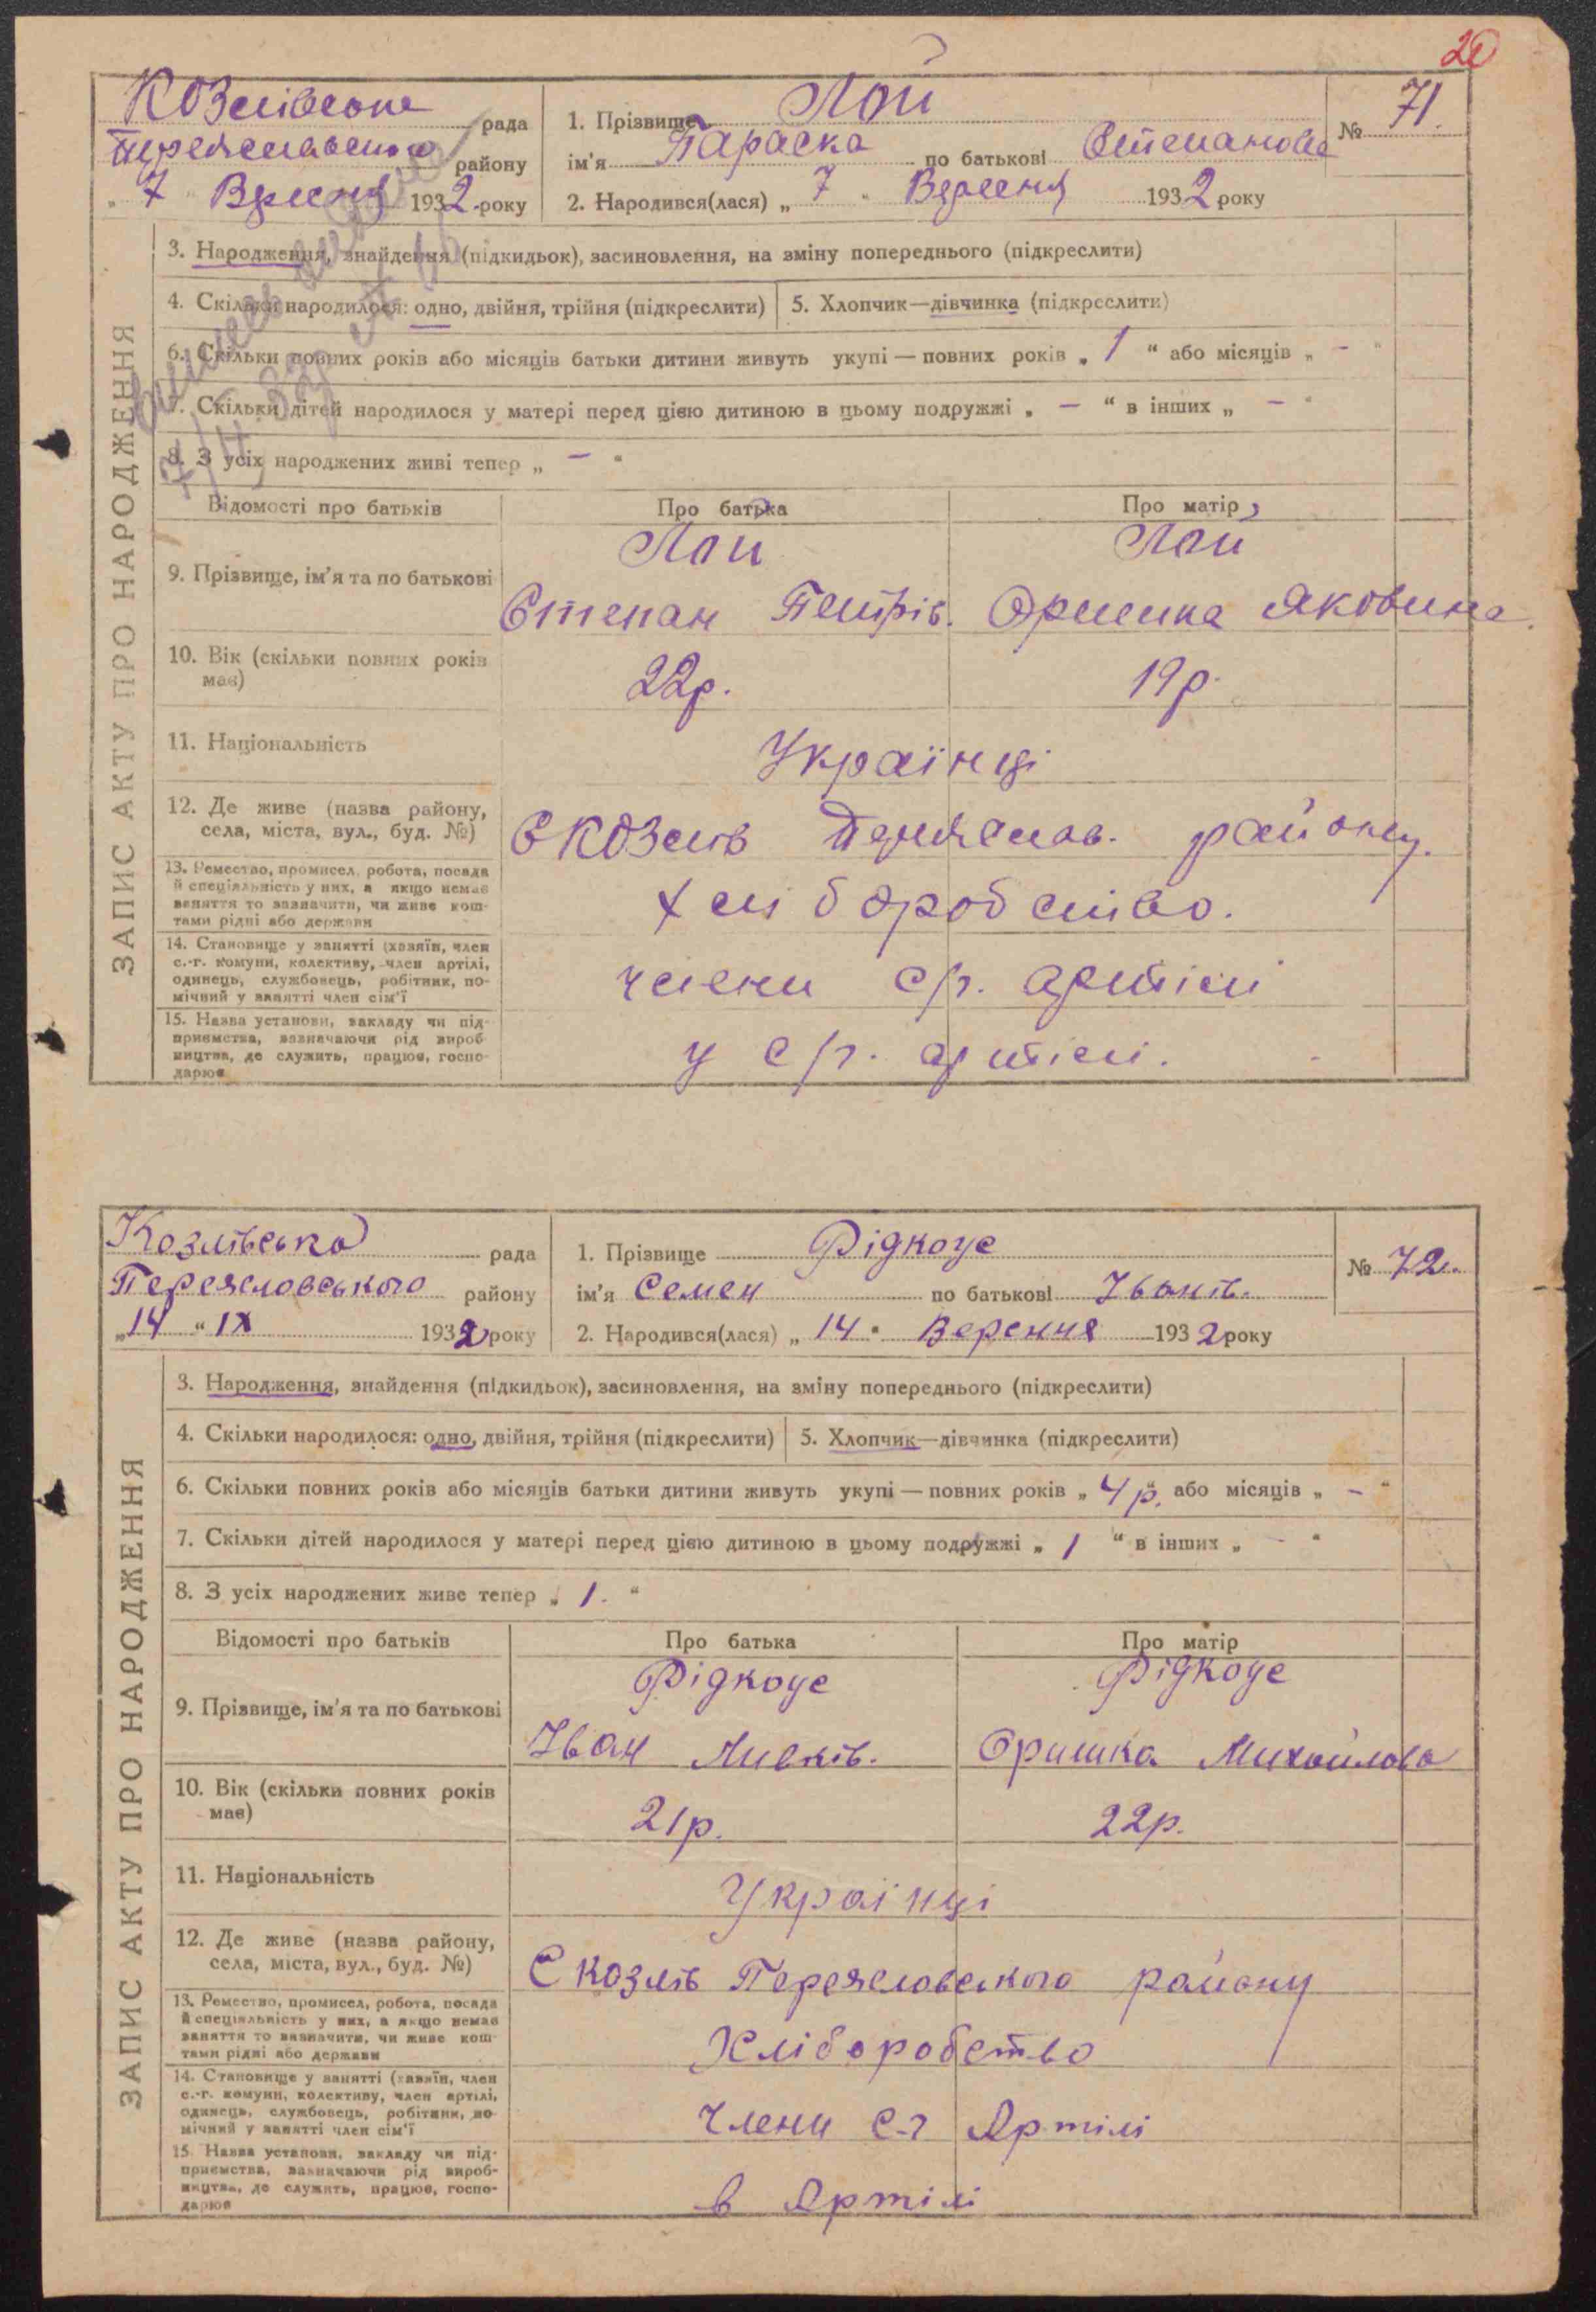 20
Козлівська рада
Переяславського району
„ 7 " Вересня 1932 року
1. Прізвище Лой
ім'я Параска по батькові Степанова
2. Народився(лася) „ 7 " Вересня 1932 року
№ 71.
ЗАПИС АКТУ ПРО НАРОДЖЕННЯ
3. Народження, знайдення (підкидьок), засиновлення, на зміну попереднього (підкреслити)
4. Скільки народилося: одно, двійня, трійня (підкреслити) 5. Хлопчик—дівчинка (підкреслити)
6. Скільки повних років або місяців батьки дитини живуть укупі — повних років „ 1 " або місяців „ – "
7. Скільки дітей народилося у матері перед цією дитиною в цьому подружжі „ – " в інших „ – "
8. З усіх народжених живі тепер „ – "
Відомості про батьків Про батька Про матір
9. Прізвище, ім'я та по батькові
Лой Лой
Степан Петрів. Оришка Яковина.
10. Вік (скільки повних років має)
22р. 19р.
11. Національність
Українці
12. Де живе (назва району, села, міста, вул., буд. №)
С Козлів Переяслав. району.
13. Ремество, промисел, робота, посада
й спеціяльність у них, а якщо немає
заняття то зазначити, чи живе кош-
тами рідні або держави
Хліборобство.
14. Становище у занятті (хазяїн, член
с.-г. комуни, колективу, член артілі,
одинець, службовець, робітник, по-
мічний у занятті член сім'ї
члени с/г. артілі
15. Назва установи, закладу чи під-
приємства, зазначаючи рід вироб-
ництва, де служить, працює, госпо-
дарює
у с/г. артілі.
Козлівська рада
Переяславського району
„ 14 " IX 1932 року
1. Прізвище Рідкоус
ім'я Семен по батькові Іванів.
2. Народився(лася) „ 14 " Вересння 1932 року
№ 72.
ЗАПИС АКТУ ПРО НАРОДЖЕННЯ
3. Народження, знайдення (підкидьок), засиновлення, на зміну попереднього (підкреслити)
4. Скільки народилося: одно, двійня, трійня (підкреслити) 5. Хлопчик—дівчинка (підкреслити)
6. Скільки повних років або місяців батьки дитини живуть укупі — повних років „ 4р. " або місяців „ – "
7. Скільки дітей народилося у матері перед цією дитиною в цьому подружжі „ 1 " в інших „ – "
8. З усіх народжених живе тепер „ 1. "
Відомості про батьків Про батька Про матір
9. Прізвище, ім'я та по батькові
Рідкоус Рідкоус
Іван Оришка Михайлова
10. Вік (скільки повних років має)
21р. 22р.
11. Національність
Українці
12. Де живе (назва району, села, міста, вул., буд. №)
С Козлів Переяславського району
13. Ремество, промисел, робота, посада
й спеціяльність у них, а якщо немає
заняття то зазначити, чи живе кош-
тами рідні або держави
Хліборобство
14. Становище у занятті (хазяїн, член
с.-г. комуни, колективу, член артілі,
одинець, службовець, робітник, по-
мічний у занятті член сім'ї
Члени с-г Артілі
15. Назва установи, закладу чи під-
приємства, зазначаючи рід вироб-
ництва, де служить, працює, госпо-
дарює
в Артілі